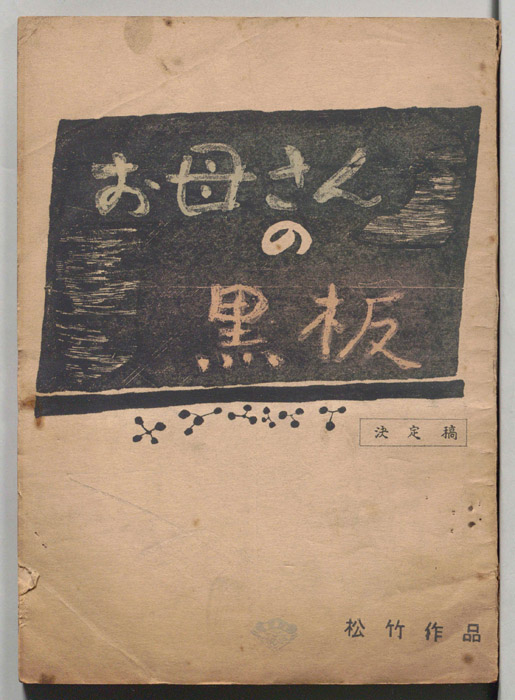 お母さん
の
黒板
決定稿
松竹作品